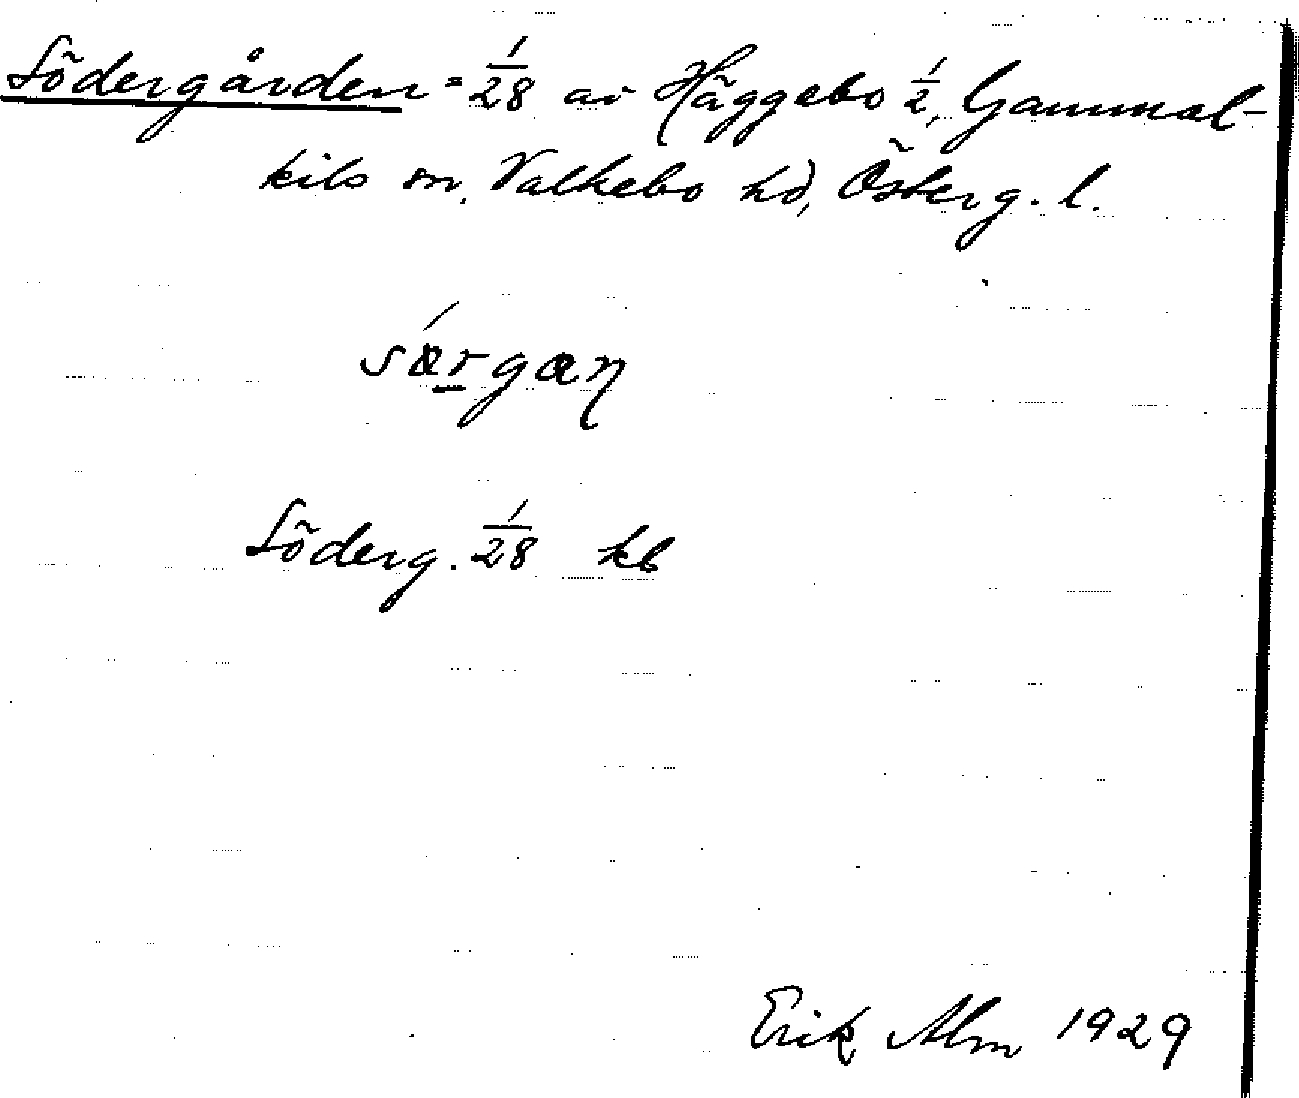 Södergården = 1/28 av Häggebo 1/2, Gammal-
kils sn, Valkebo hd, Österg. l.
Söderg. 1/28 kb
Erik Alm 1929